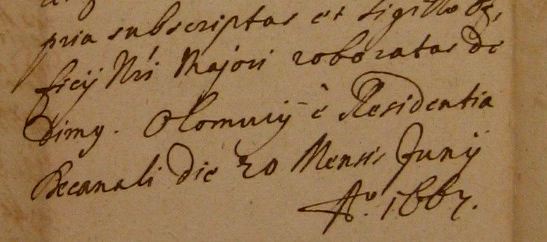 pria subscriptas et Sigillo Of,
ficij Nri Majori roboratas de
dimg. Olomucij è Residentia
Decanali die 20 Mensis Junij
Aº. 1667.